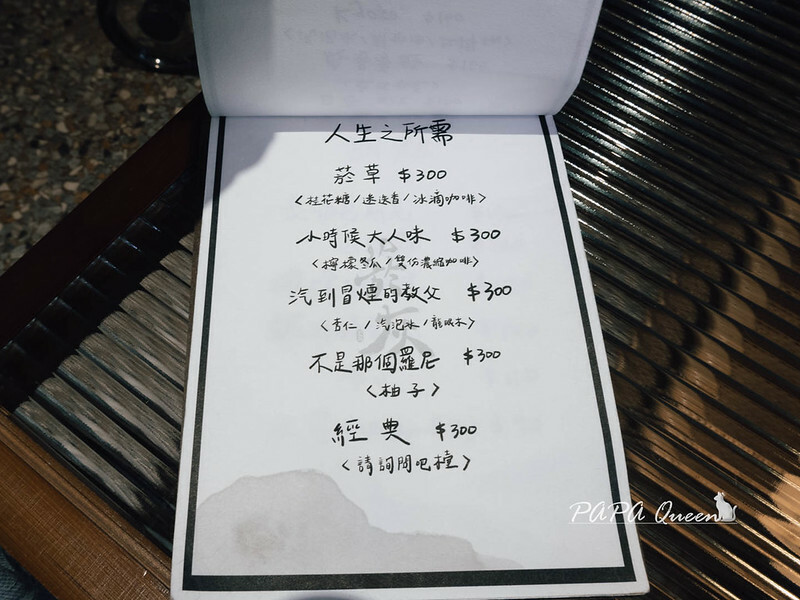 人生之所需
菸草 $300
〈桂花糖/迷迭香/冰滴咖啡〉
小時候大人味 $300
〈檸檬冬瓜/雙份濃縮咖啡〉
汽到冒煙的教父 $300
〈杏仁/汽泡水/龍眼木〉
不是那個羅尼 $300
〈柚子〉
經典 $300
〈請詢問吧檯〉
PAPA Queen